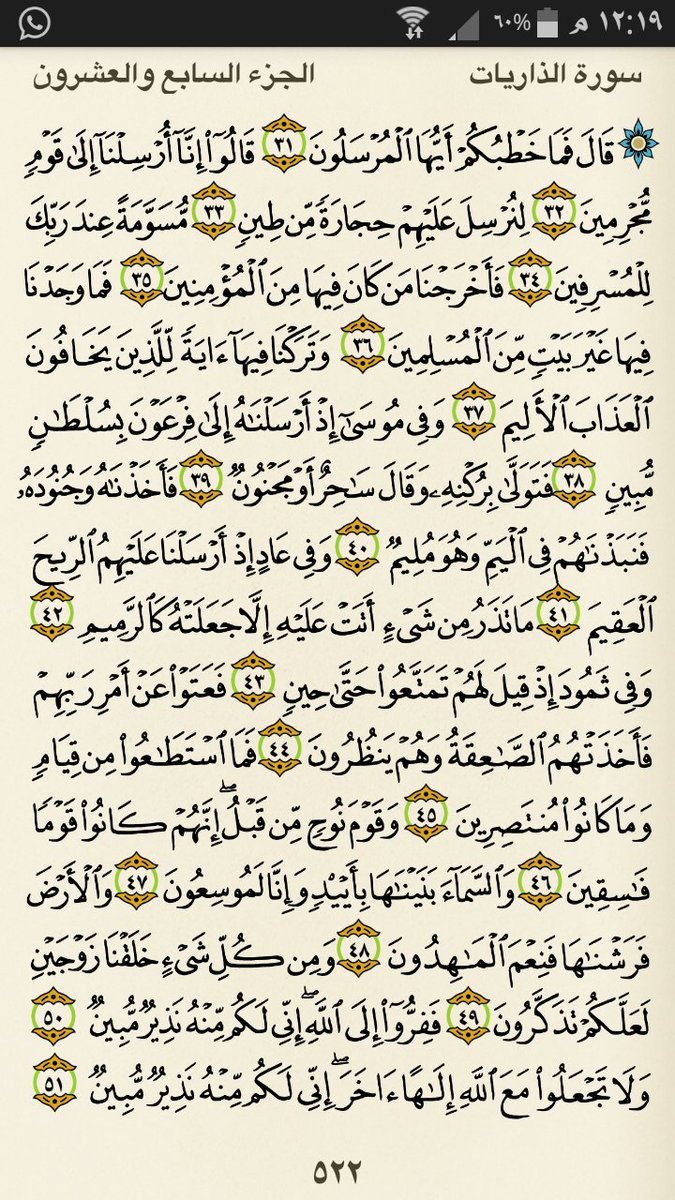 ١٢:١٩ م ٦٠%
سورة الذاريات الجزء السابع والعشرون
قَالَ فَمَا خَطْبُكُمْ أَيُّهَا ٱلْمُرْسَلُونَ ٣١ قَالُوٓا۟ إِنَّآ أُرْسِلْنَآ إِلَىٰ قَوْمٍ
مُّجْرِمِينَ ٣٢ لِنُرْسِلَ عَلَيْهِمْ حِجَارَةً مِّن طِينٍ ٣٣ مُّسَوَّمَةً عِندَ رَبِّكَ
لِلْمُسْرِفِينَ ٣٤ فَأَخْرَجْنَا مَن كَانَ فِيهَا مِنَ ٱلْمُؤْمِنِينَ ٣٥ فَمَا وَجَدْنَا
فِيهَا غَيْرَ بَيْتٍ مِّنَ ٱلْمُسْلِمِينَ ٣٦ وَتَرَكْنَا فِيهَآ ءَايَةً لِّلَّذِينَ يَخَافُونَ
ٱلْعَذَابَ ٱلْأَلِيمَ ٣٧ وَفِى مُوسَىٰٓ إِذْ أَرْسَلْنَٰهُ إِلَىٰ فِرْعَوْنَ بِسُلْطَٰنٍ
مُّبِينٍ ٣٨ فَتَوَلَّىٰ بِرُكْنِهِۦ وَقَالَ سَٰحِرٌ أَوْ مَجْنُونٌ ٣٩ فَأَخَذْنَٰهُ وَجُنُودَهُۥ
فَنَبَذْنَٰهُمْ فِى ٱلْيَمِّ وَهُوَ مُلِيمٌ ٤٠ وَفِى عَادٍ إِذْ أَرْسَلْنَا عَلَيْهِمُ ٱلرِّيحَ
ٱلْعَقِيمَ ٤١ مَا تَذَرُ مِن شَىْءٍ أَتَتْ عَلَيْهِ إِلَّا جَعَلَتْهُ كَٱلرَّمِيمِ ٤٢
وَفِى ثَمُودَ إِذْ قِيلَ لَهُمْ تَمَتَّعُوا۟ حَتَّىٰ حِينٍ ٤٣ فَعَتَوْا۟ عَنْ أَمْرِ رَبِّهِمْ
فَأَخَذَتْهُمُ ٱلصَّٰعِقَةُ وَهُمْ يَنظُرُونَ ٤٤ فَمَا ٱسْتَطَٰعُوا۟ مِن قِيَامٍ
وَمَا كَانُوا۟ مُنتَصِرِينَ ٤٥ وَقَوْمَ نُوحٍ مِّن قَبْلُ ۖ إِنَّهُمْ كَانُوا۟ قَوْمًا
فَٰسِقِينَ ٤٦ وَٱلسَّمَآءَ بَنَيْنَٰهَا بِأَيْي۟دٍ وَإِنَّا لَمُوسِعُونَ ٤٧ وَٱلْأَرْضَ
فَرَشْنَٰهَا فَنِعْمَ ٱلْمَٰهِدُونَ ٤٨ وَمِن كُلِّ شَىْءٍ خَلَقْنَا زَوْجَيْنِ
لَعَلَّكُمْ تَذَكَّرُونَ ٤٩ فَفِرُّوٓا۟ إِلَى ٱللَّهِ ۖ إِنِّى لَكُم مِّنْهُ نَذِيرٌ مُّبِينٌ ٥٠
وَلَا تَجْعَلُوا۟ مَعَ ٱللَّهِ إِلَٰهًا ءَاخَرَ ۖ إِنِّى لَكُم مِّنْهُ نَذِيرٌ مُّبِينٌ ٥١
٥٢٢